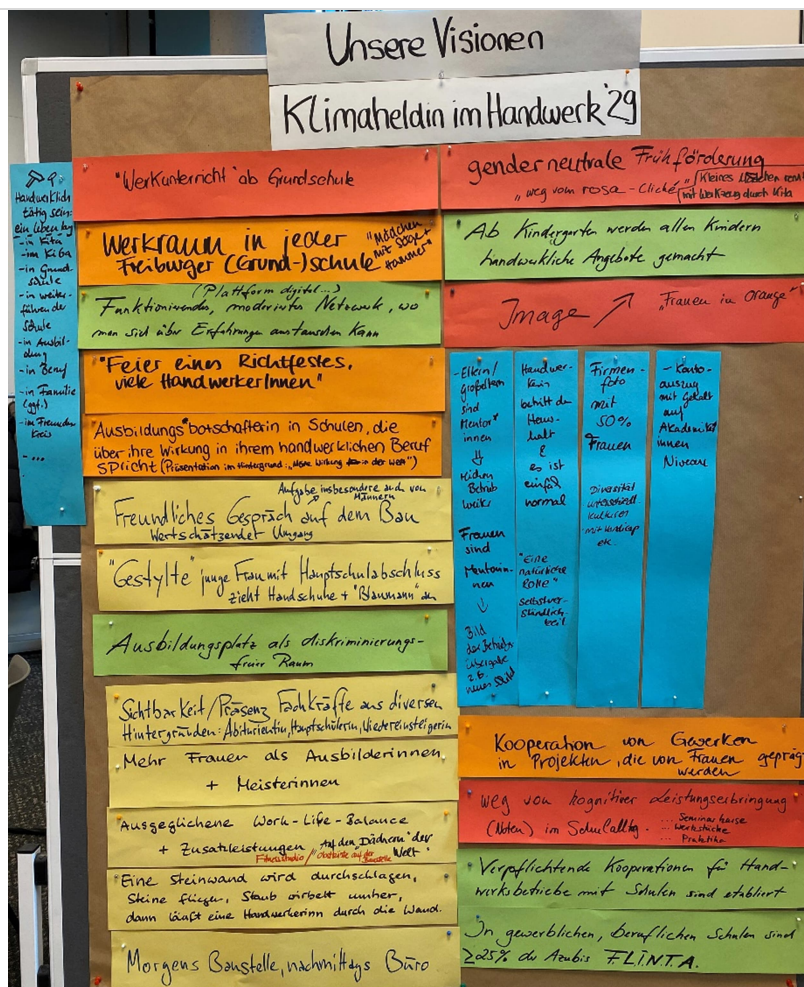 Unsere Visionen
Klimaheldin im Handwerk '29
Handwerklich
tätig sein:
ein Leben lang
- in Kita
- in Grund-
schule
- in weiter-
führender
Schule
- in Ausbil-
dung
- in Beruf
- in Familie
(ggf.)
- im Freundes
Kreis
- ...
"Werkunterricht" ab Grundschule
Werkraum in jeder
Freiburger (Grund-)schule
"Mädchen
mit Säge +
Hammer"
(Plattform digital...)
Funktionierendes, moderiertes Netzwerk, wo
man sich über Erfahrungen austauschen kann
"Feier eines Richtfestes,
viele HandwerkerInnen"
Ausbildungsbotschafterin in Schulen, die
über ihre Wirkung in ihrem handwerklichen Beruf
spricht (Präsentation im Hintergrund: "Meine Wirkung in der Welt")
Aufgabe insbesondere auch von
Männern
Freundliches Gespräch auf dem Bau
Wertschätzender Umgang
"Gestylte" junge Frau mit Hauptschulabschluss
zieht Handschuhe + "Blaumann" an
Ausbildungsplatz als diskriminierungs-
freier Raum
Sichtbarkeit/Präsenz Fachkräfte aus diversen
Hintergründen: Abiturientin, Hauptschülerin, Wiedereinsteigerin
Mehr Frauen als Ausbilderinnen
+ Meisterinnen
Ausgeglichene Work-Life-Balance
+ Zusatzleistungen "Auf den Dächern der
Welt"
Fitnessstudio / Obstkiste auf der
Baustelle
Eine Steinwand wird durchschlagen,
Steine fliegen, Staub wirbelt umher,
dann läuft eine Handwerkerin durch die Wand.
Morgens Baustelle, nachmittags Büro
genderneutrale Frühförderung
"weg vom rosa-Cliché"
Kleines Mädchen rennt
mit Werkzeug durch Kita
Ab Kindergarten werden allen Kindern
handwerkliche Angebote gemacht
Image ↗ "Frauen in Orange"
- Eltern/
Großeltern
sind
Mentor*
innen
⇓
Betrieb
weiter
Frauen
sind
Mentorin-
nen
↓
Bild
der Betriebs-
übergabe
z.B.
Handwer-
kerin
betritt den
Haus-
halt
&
es ist
einfach
normal
"Eine
natürliche
Rolle"
Selbstver-
ständlich-
keit
Firmen-
foto
mit
50%
Frauen
Diversität
unterschiedl.
Kulturen
mit Handicap
etc.
- Konto-
auszug
mit Gehalt
auf
Akademiker
innen
Niveau
Kooperation von Gewerken
in Projekten, die von Frauen geprägt
werden
weg von kognitiver Leistungserbringung
(Noten) im Schulalltag.
... Seminarkurse
... Werkstücke
... Praktika
Verpflichtende Kooperationen für Hand-
werksbetriebe mit Schulen sind etabliert
In gewerblichen, beruflichen Schulen sind
≥25% der Azubis F.L.I.N.T.A.